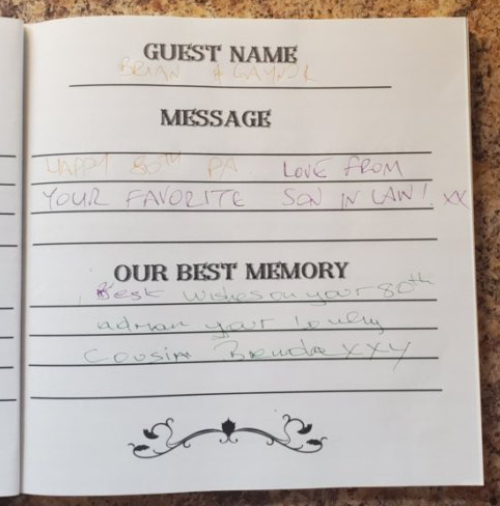 GUEST NAME
BRIAN & GAYNOR
MESSAGE
HAPPY 80TH PA. LOVE FROM
YOUR FAVORITE SON IN LAW! XX
OUR BEST MEMORY
Best wishes on your 80th
adrian your lovely
Cousin Brenda xxy